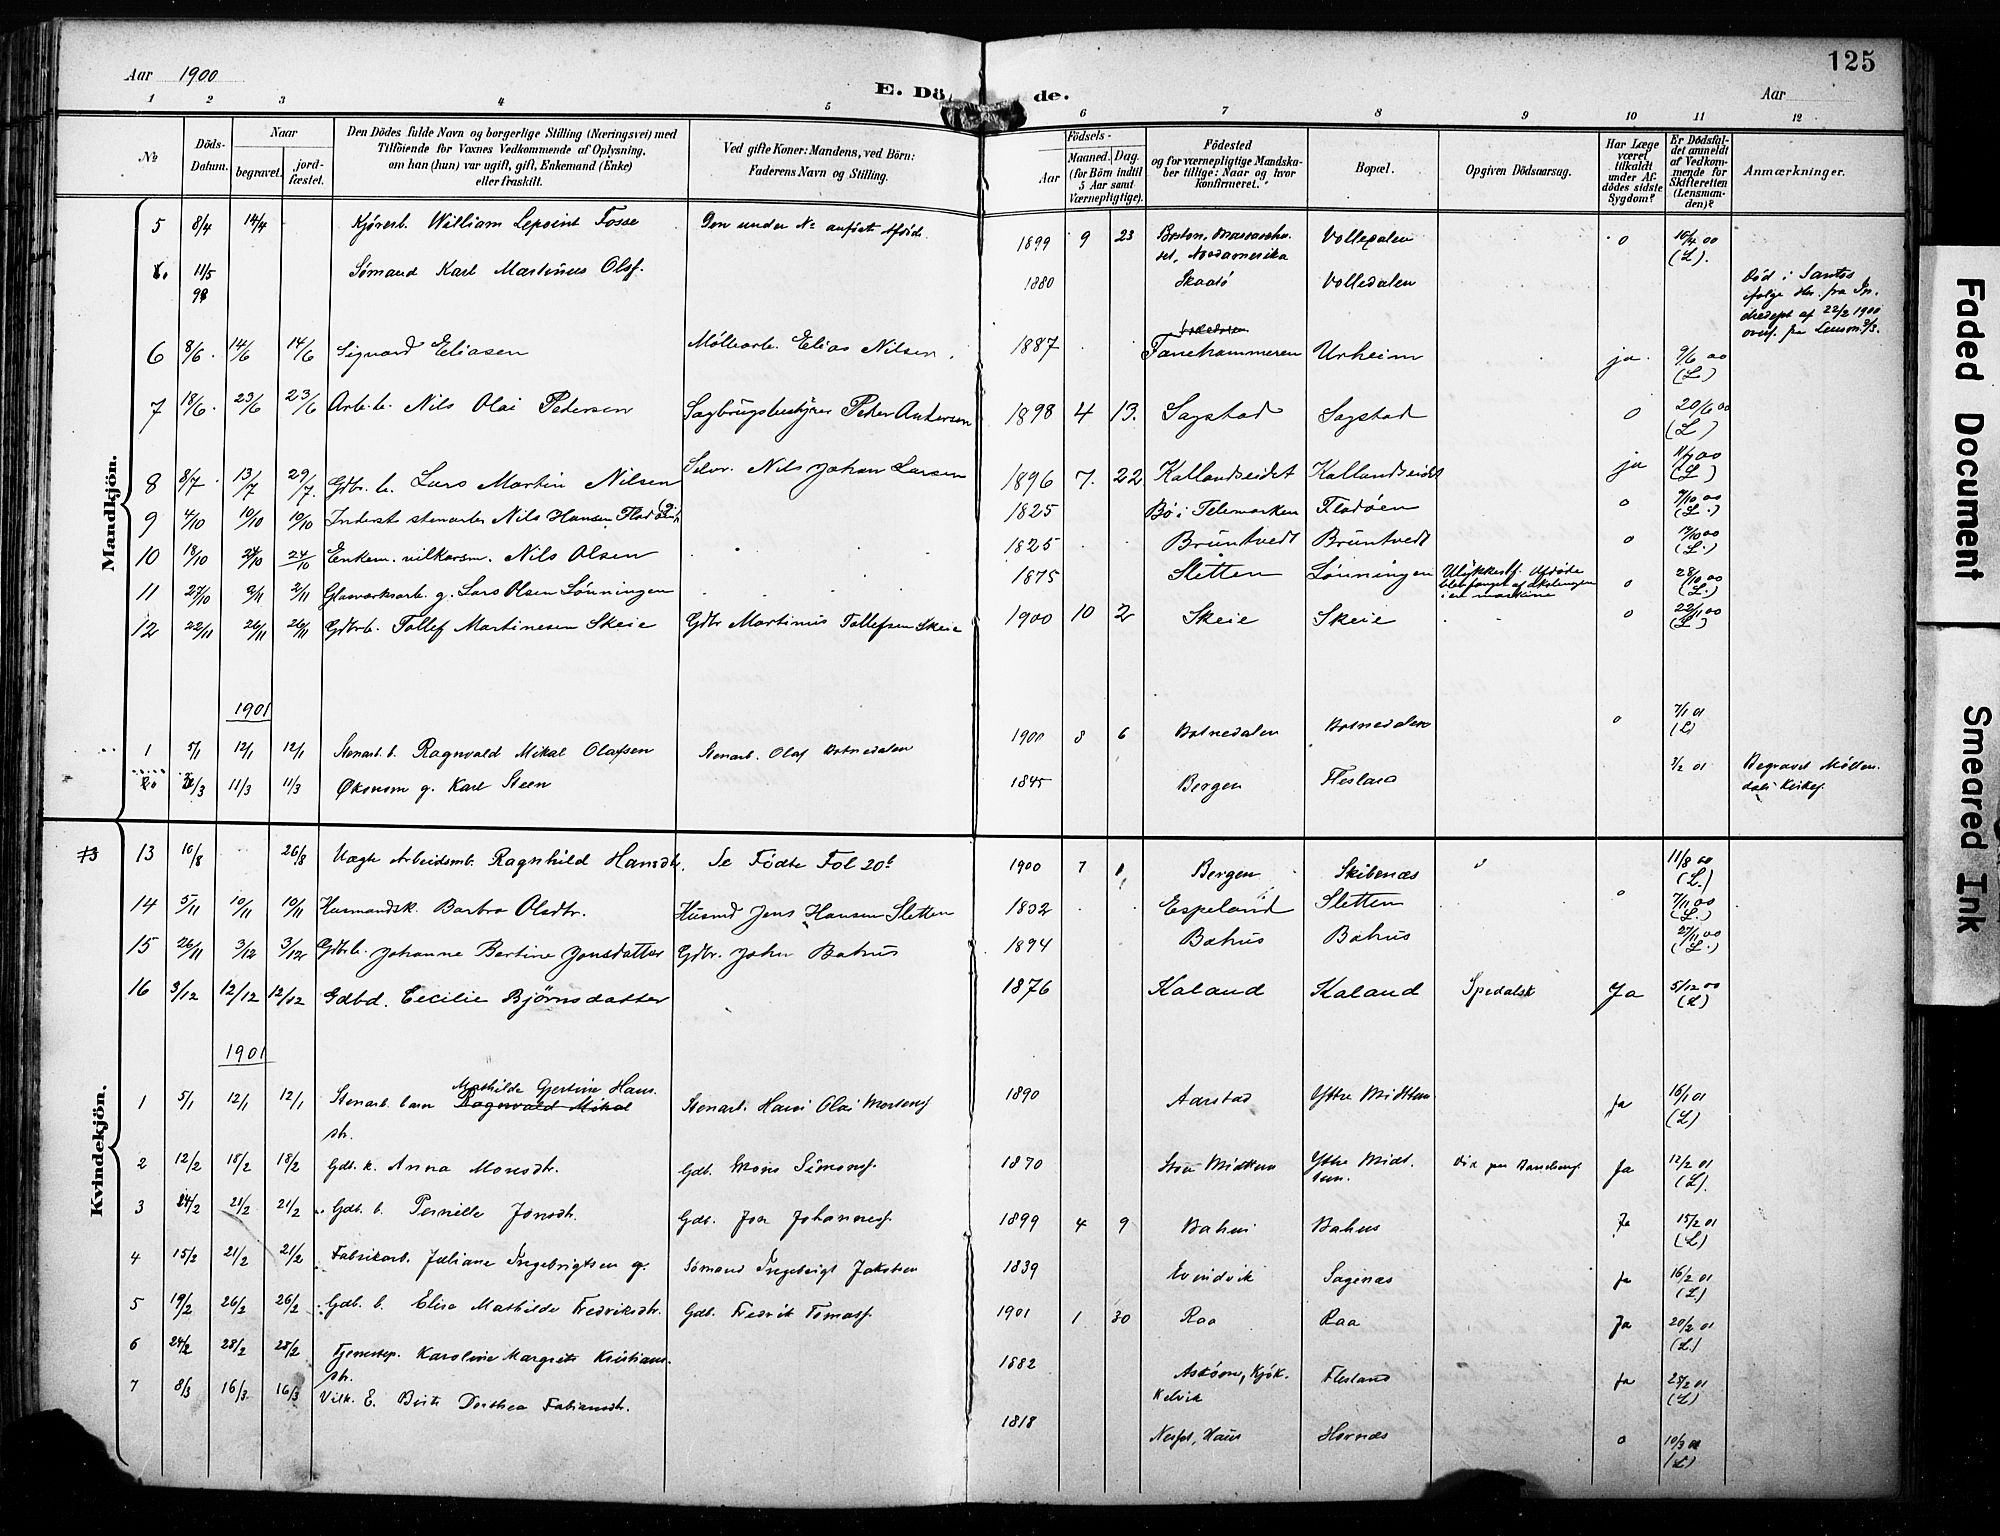 125
Aar 1900
E. Dö de.
Aar
1 2 3 4 5 6 7 8 9 10 11 12
№
Döds-Datum.
Naar
begravet.
jord-fæstet.
Den Dödes fulde Navn og borgerlige Stilling (Næringsvei) med
Tilföiende for Voxnes Vedkommende af Oplysning,
om han (hun) var ugift, gift, Enkemand (Enke)
eller fraskilt.
Ved gifte Koner: Mandens, ved Börn:
Faderens Navn og Stilling.
Födsels-
Aar
Maaned. Dag.
(for Börn indtil
5 Aar samt
Værnepligtige).
Födested
og for værnepligtige Mandska-
ber tillige: Naar og hvor
konfirmeret.
Bopæl.
Opgiven Dödsaarsag.
Har Læge
været
tilkaldt
under Af-
dödes sidste
Sygdom?
Er Dödsfal-
det anmeldt
af Vedkom-
mende for
Skifteretten
(Lensman-
den)?
Anmærkninger.
Mandkjön.
5 8/4 14/4 William Fosse 1899 9 23 Boston, Nordamerika Volledalen o 10/4 00 (L).
11/5 98 Sømand Karl Martinus Olsf. 1880 Skaatø Volledalen Død i Santos
6 8/6 14/6 14/6 Sigvard Eliasen Møllearb. Elias Nilsen 1887 Tanehammeren Urheim ja 9/6 00 (L)
7 18/6 23/6 23/6 Arb. b. Nils Olai Pedersen Sagbrugsbestyrer Peder Andersen 1898 4 13 Sagstad Sagstad o 20/6 00 (L)
8 8/7 13/7 29/7 Gdbr. b. Lars Martin Nilsen Selvr. Nils Johan Larsen 1896 7. 22 Kallandseidet Kallandseidet ja 11/7 00 (L)
9 4/10 10/10 10/10 Inderst stenarbr Nils Hansen Fladøen 1825 Bø i Telemarken Fladøen o 7/10 00 (L.)
10 18/10 24/10 24/10 Enkem. vilkarsm. Nils Olsen 1825 Bruntvedt Bruntvedt o 19/10 00 (L.)
11 27/10 2/11 2/11 Glasværksarb. g. Lars Olsen Lønningen 1875 Sletten Lønningen Ulykkest. Afdøde
blev fanget af
i en maskine o 28/10 00 (L.)
12 22/11 26/11 26/11 Gdbr b. Tollef Martinesen Skeie Gdbr Martinus Tollefsen Skeie 1900 10 2 Skeie Skeie o 22/11 00 (L)
1901
1 5/1 12/1 12/1 Stenarb. b. Ragnvald Mikal Olafsen Stenarb. Olaf Botnedalen 1900 8 6 Botnedalen Botnedalen o 7/1 01 (L)
11/3 11/3 Økonom g. Karl Steen 1845 Bergen Flesland 7/2 01 Begravet Møllen-
dals Kirkeg.
Kvindekjön.
13 10/8 26/8 Uægte Arbeidsmb. Ragnhild Hansdtr. Se Fødte Fol 20b 1900 7 Bergen Skibenæs 11/8 00 (L.)
14 5/11 10/11 10/11 Husmandsk. Barbra Olsdtr. Husmd Jens Hansen Sletten 1832 Espeland Sletten o 7/11 00 (L.)
15 26/11 3/12 3/12 Gdbr b. Johanne Bertine Jonsdatter Gdbr. John Bahus 1894 Bahus Bahus 27/11 00 (L.)
16 3/12 12/12 12/12 Gdbd. Cecilie Bjørnsdatter 1876 Kaland Kaland Spedalsk Ja 5/12 00 (L)
1901
1 5/1 12/1 12/1 Stenarb. barn Mathilde Gjertine Hans-
Ragnvald Mikal
dtr. Stenarb. Hans Olai Mortensf 1890 Aarstad Yttre Midttun Ja 16/1 01 (L)
2 12/2 18/2 18/2 Gdb. k. Anna Monsdtr. Gdb. Mons Simonsf 1870 Store Midttun Yttre Midt-
tun. Ja 12/2 01 (L).
3 21/2 21/2 Gdb. b. Pernille Jonsdtr. Gdb. Jon Johannesf 1899 4 9 Bahus Bahus Ja 15/2 01 (L)
4 15/2 21/2 21/2 Fabrikarb. Juliane Ingebrigtsen g. Sømand Ingebrigt Jakobsen 1839 Evindvik Sagenæs Ja 16/2 01 (L)
5 19/2 26/2 26/2 Gdb. b. Elisa Mathilde Fredriksdtr. Gdb. Fredrik Tomasf. 1901 1 30 Raa Raa Ja 20/2 01 (L)
6 24/2 28/2 28/2 Tjenestep. Karoline Margrete Kristians-
dtr. 1882 Askøen, Kjøk-
kelvik Flesland Ja 25/2 01 (L)
7 8/3 16/3 16/3 Vilk. E. Berte Dorthea Fabiansdtr. 1818 Haus Hornæs o 10/3 01 (L)
Faded Document
Smeared Ink